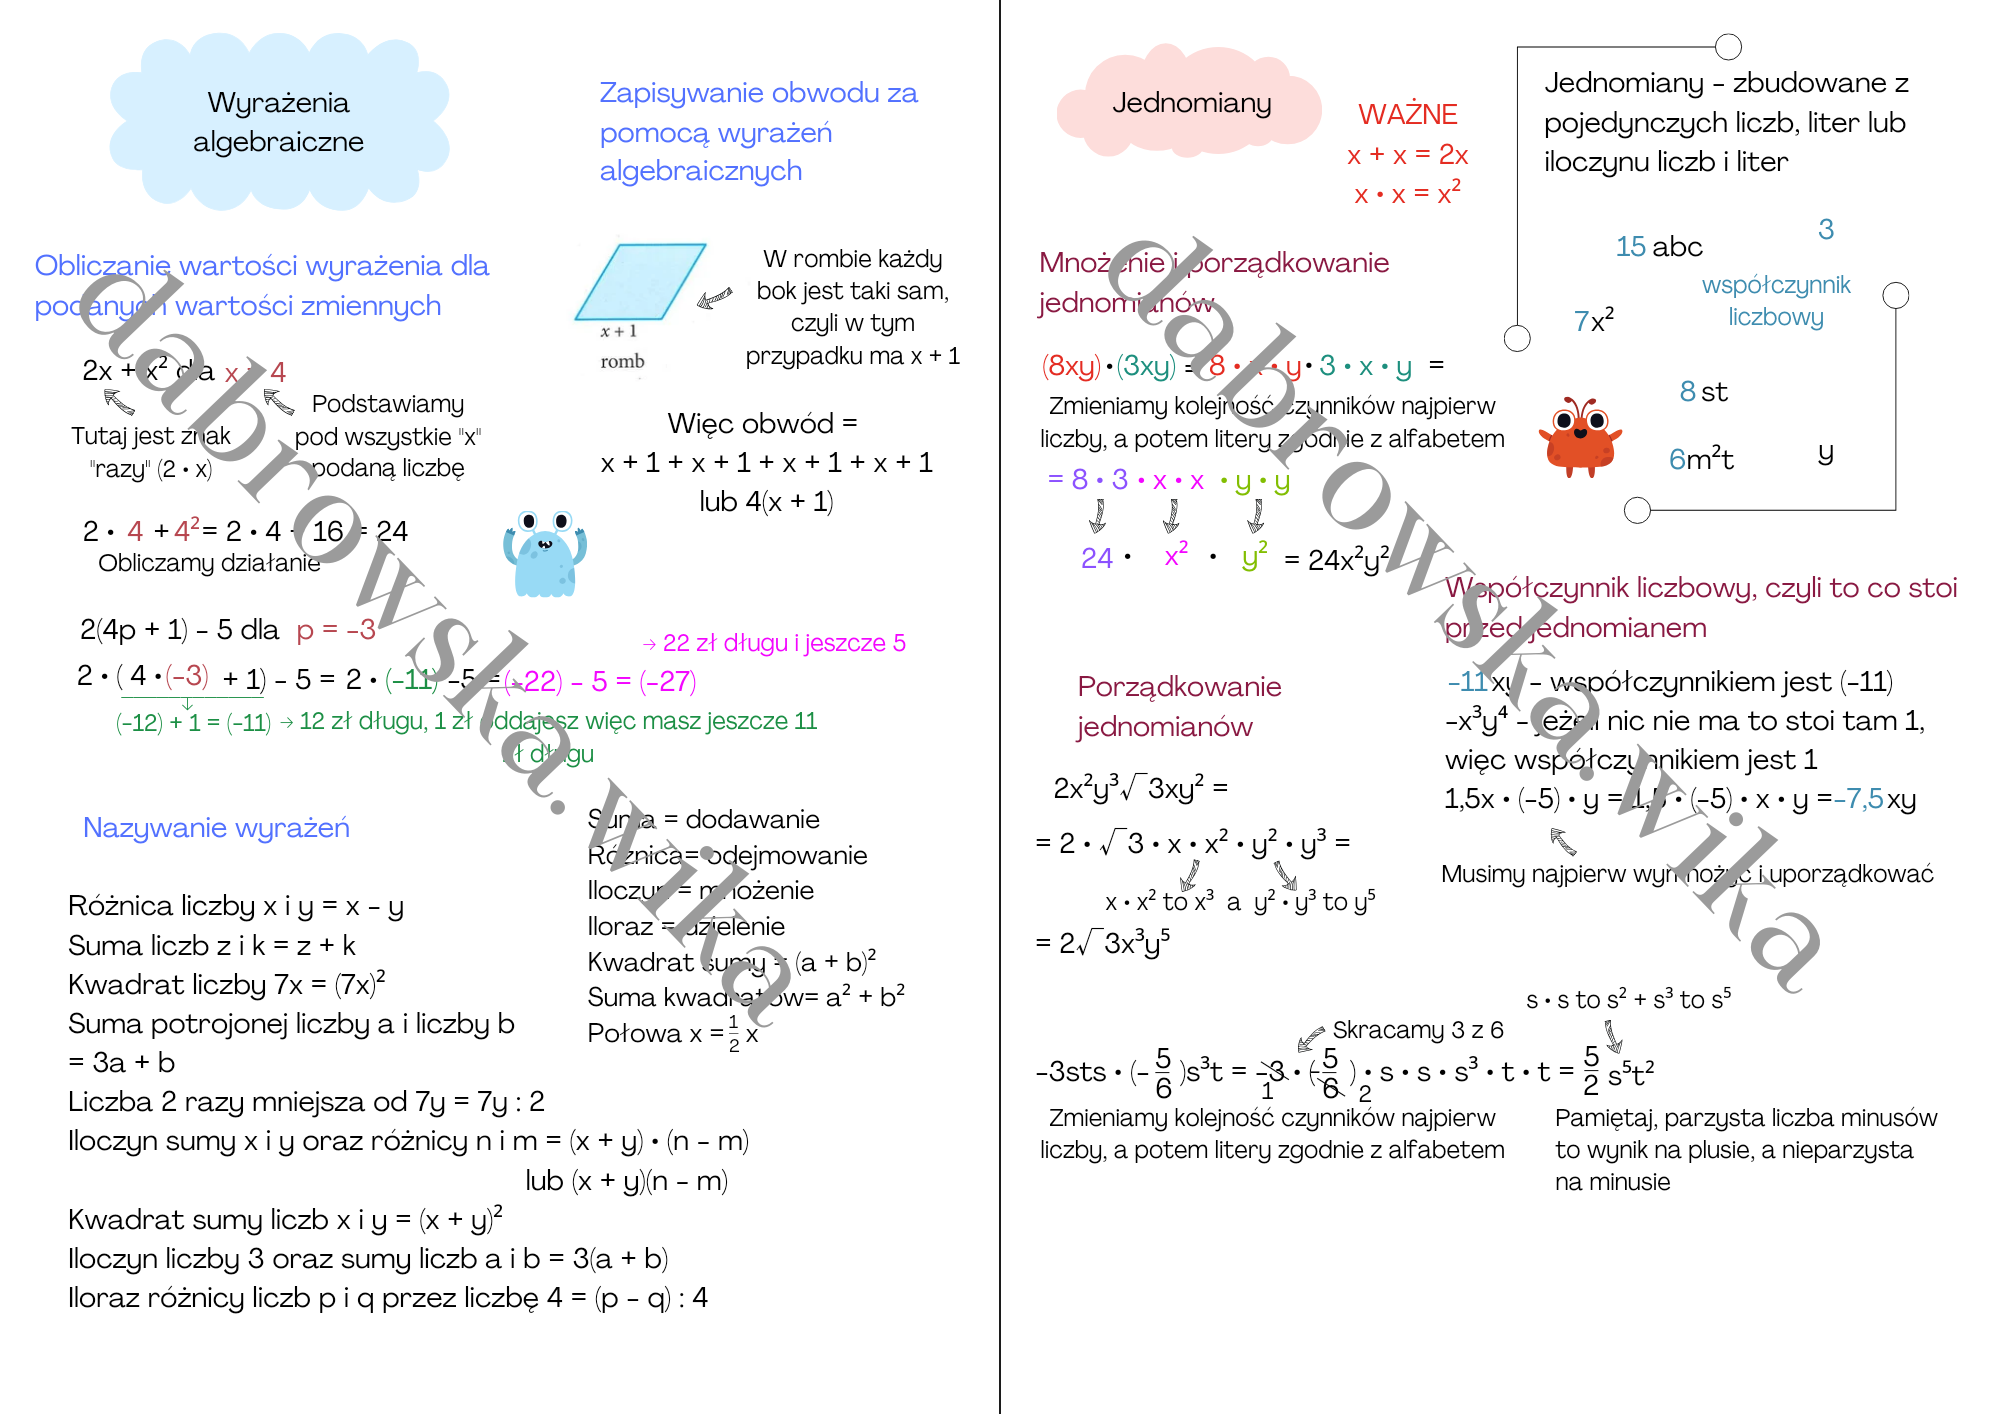 Wyrażenia
algebraiczne
Zapisywanie obwodu za
pomocą wyrażeń
algebraicznych
Obliczanie wartości wyrażenia dla
podanych wartości zmiennych
2x + x² dla x = 4
Tutaj jest znak
"razy" (2 • x)
Podstawiamy
pod wszystkie "x"
podaną liczbę
2 • 4 + 4² = 2 • 4 + 16 = 24
Obliczamy działanie
x + 1
romb
W rombie każdy
bok jest taki sam,
czyli w tym
przypadku ma x + 1
Więc obwód =
x + 1 + x + 1 + x + 1 + x + 1
lub 4(x + 1)
2(4p + 1) - 5 dla p = -3
→ 22 zł długu i jeszcze 5
2 • ( 4 • (-3) + 1) - 5 = 2 • (-11) -5 = (-22) - 5 = (-27)
(-12) + 1 = (-11) → 12 zł długu, 1 zł oddajesz więc masz jeszcze 11
zł długu
Nazywanie wyrażeń
Różnica liczby x i y = x - y
Suma liczb z i k = z + k
Kwadrat liczby 7x = (7x)²
Suma potrojonej liczby a i liczby b
= 3a + b
Liczba 2 razy mniejsza od 7y = 7y : 2
Iloczyn sumy x i y oraz różnicy n i m = (x + y) • (n - m)
lub (x + y)(n - m)
Kwadrat sumy liczb x i y = (x + y)²
Iloczyn liczby 3 oraz sumy liczb a i b = 3(a + b)
Iloraz różnicy liczb p i q przez liczbę 4 = (p - q) : 4
Suma = dodawanie
Różnica= odejmowanie
Iloczyn = mnożenie
Iloraz = dzielenie
Kwadrat sumy = (a + b)²
Suma kwadratów= a² + b²
Połowa x = 1/2 x
dabrowska.wika
Jednomiany
WAŻNE
x + x = 2x
x • x = x²
Jednomiany - zbudowane z
pojedynczych liczb, liter lub
iloczynu liczb i liter
15 abc
3
współczynnik
liczbowy
7x²
8 st
6m²t
y
Mnożenie i porządkowanie
jednomianów
(8xy) • (3xy) = 8 • x • y • 3 • x • y =
Zmieniamy kolejność czynników najpierw
liczby, a potem litery zgodnie z alfabetem
= 8 • 3 • x • x • y • y
24 • x² • y² = 24x²y²
Współczynnik liczbowy, czyli to co stoi
przed jednomianem
-11xy - współczynnikiem jest (-11)
-x³y⁴ - jeżeli nic nie ma to stoi tam 1,
więc współczynnikiem jest 1
1,5x • (-5) • y = 1,5 • (-5) • x • y = -7,5 xy
Musimy najpierw wymnożyć i uporządkować
Porządkowanie
jednomianów
2x²y³√3xy² =
= 2 • √3 • x • x² • y² • y³ =
x • x² to x³ a y² • y³ to y⁵
= 2√3x³y⁵
s • s to s² + s³ to s⁵
Skracamy 3 z 6
-3sts • (- 5/6 )s³t = -3 • (-5/6 ) • s • s • s³ • t • t = 5/2 s⁵t²
1 2
Zmieniamy kolejność czynników najpierw
liczby, a potem litery zgodnie z alfabetem
Pamiętaj, parzysta liczba minusów
to wynik na plusie, a nieparzysta
na minusie
dabrowska.wika